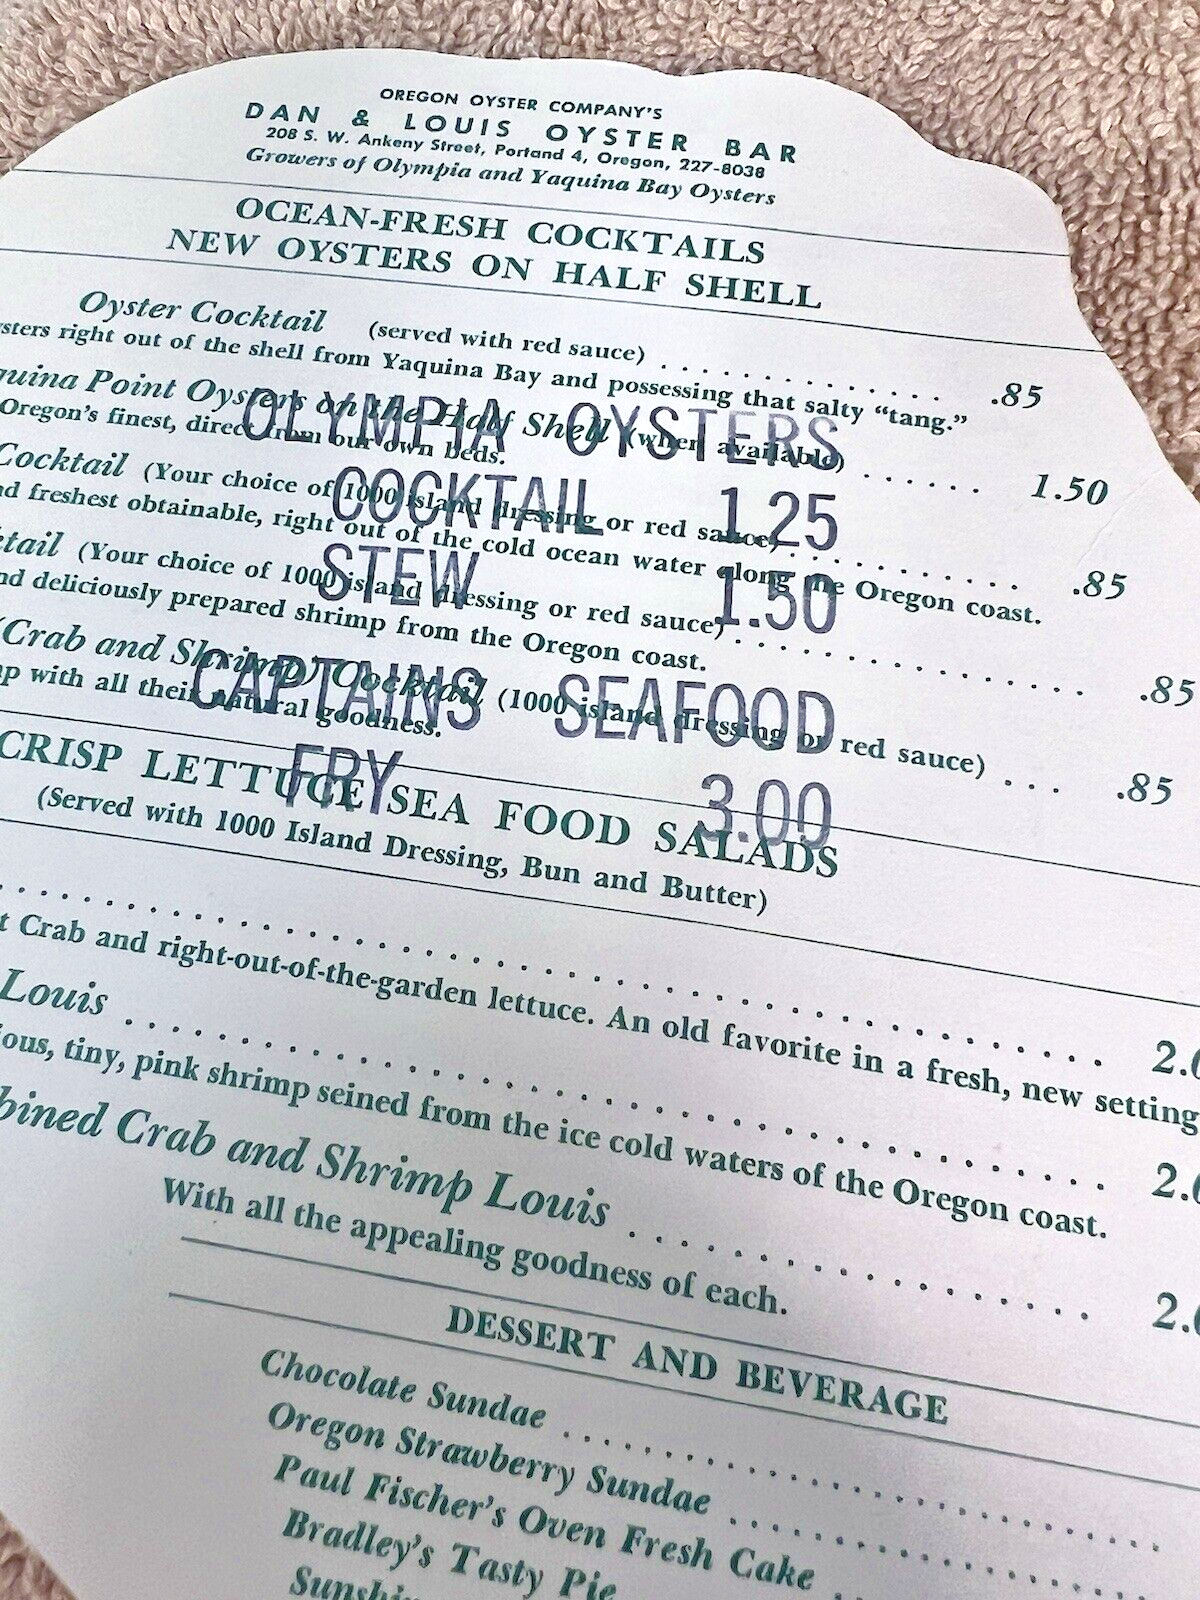 OREGON OYSTER COMPANY'S
DAN & LOUIS OYSTER BAR
208 S. W. Ankeny Street, Portand 4, Oregon, 227-8038
Growers of Olympia and Yaquina Bay Oysters
OCEAN-FRESH COCKTAILS
NEW OYSTERS ON HALF SHELL
Oyster Cocktail (served with red sauce) . . . . . . . . . . . . . .85
right out of the shell from Yaquina Bay and possessing that salty "tang."
Point Oysters on the Half Shell (when available) . . . . . . . 1.50
Oregon's finest, direct from our own beds.
Cocktail (Your choice of 1000 island dressing or red sauce) . . . . . . . . . . . . .85
freshest obtainable, right out of the cold ocean water along the Oregon coast.
(Your choice of 1000 island dressing or red sauce) . . . . . . . . . . . . . . . .85
deliciously prepared shrimp from the Oregon coast.
(Crab and Shrimp) Cocktail (1000 island dressing or red sauce) . . . .85
with all their natural goodness.
OLYMPIA OYSTERS
COCKTAIL 1.25
STEW 1.50
CAPTAINS SEAFOOD
FRY 3.00
CRISP LETTUCE SEA FOOD SALADS
(Served with 1000 Island Dressing, Bun and Butter)
Crab and right-out-of-the-garden lettuce. An old favorite in a fresh, new setting
Louis
tiny, pink shrimp seined from the ice cold waters of the Oregon coast.
Crab and Shrimp Louis
With all the appealing goodness of each.
DESSERT AND BEVERAGE
Chocolate Sundae
Oregon Strawberry Sundae
Paul Fischer's Oven Fresh Cake
Bradley's Tasty Pie